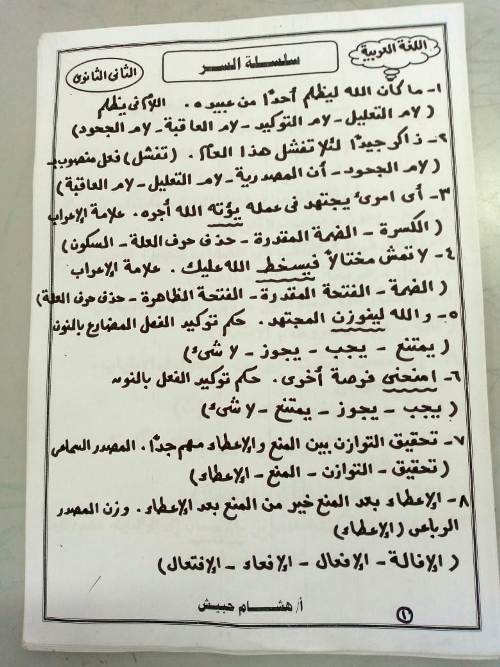 اللغة العربية
سلسلة السر
الثانى الثانوى
١- ما كان الله ليظلم أحدًا من عبيده. اللام فى يظلم
(لام التعليل - لام التوكيد - لام العاقبة - لام الجحود)
٢- ذاكر جيدًا لئلا تفشل هذا العام. (تفشل) فعل منصوب بـ
(لام الجحود - أن المصدرية - لام التعليل - لام العاقبة)
٣- أى امرئ يجتهد فى عمله يؤته الله أجره. علامة الإعراب
(الكسرة - الضمة المقدرة - حذف حرف العلة - السكون)
٤- لا تمش مختالًا فيسخط الله عليك. علامة الإعراب
(الضمة - الفتحة المقدرة - الفتحة الظاهرة - حذف حرف العلة)
٥- والله ليفوزن المجتهد. حكم توكيد الفعل المضارع بالنون
(يمتنع - يجب - يجوز - لا شئ)
٦- امنحنى فرصة أخرى. حكم توكيد الفعل بالنون
(يجب - يجوز - يمتنع - لا شئ)
٧- تحقيق التوازن بين المنع والإعطاء مهم جدًا. المصدر السماعى
(تحقيق - التوازن - المنع - الإعطاء)
٨- الإعطاء بعد المنع خير من المنع بعد الإعطاء. وزن المصدر
الرباعى (الإعطاء)
(الإفالة - الإفعال - الإفعاء - الإفتعال)
أ/ هشام حبيش
١